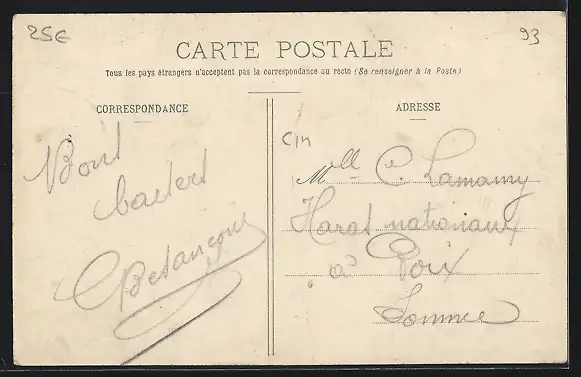 25€
93
CARTE POSTALE
Tous les pays étrangers n'acceptent pas la correspondance au recto (Se renseigner à la Poste)
CORRESPONDANCE
ADRESSE
Bons
baisers
C. Besançon
Mlle C. Lamamy
Haras nationaux
à Poix
Somme